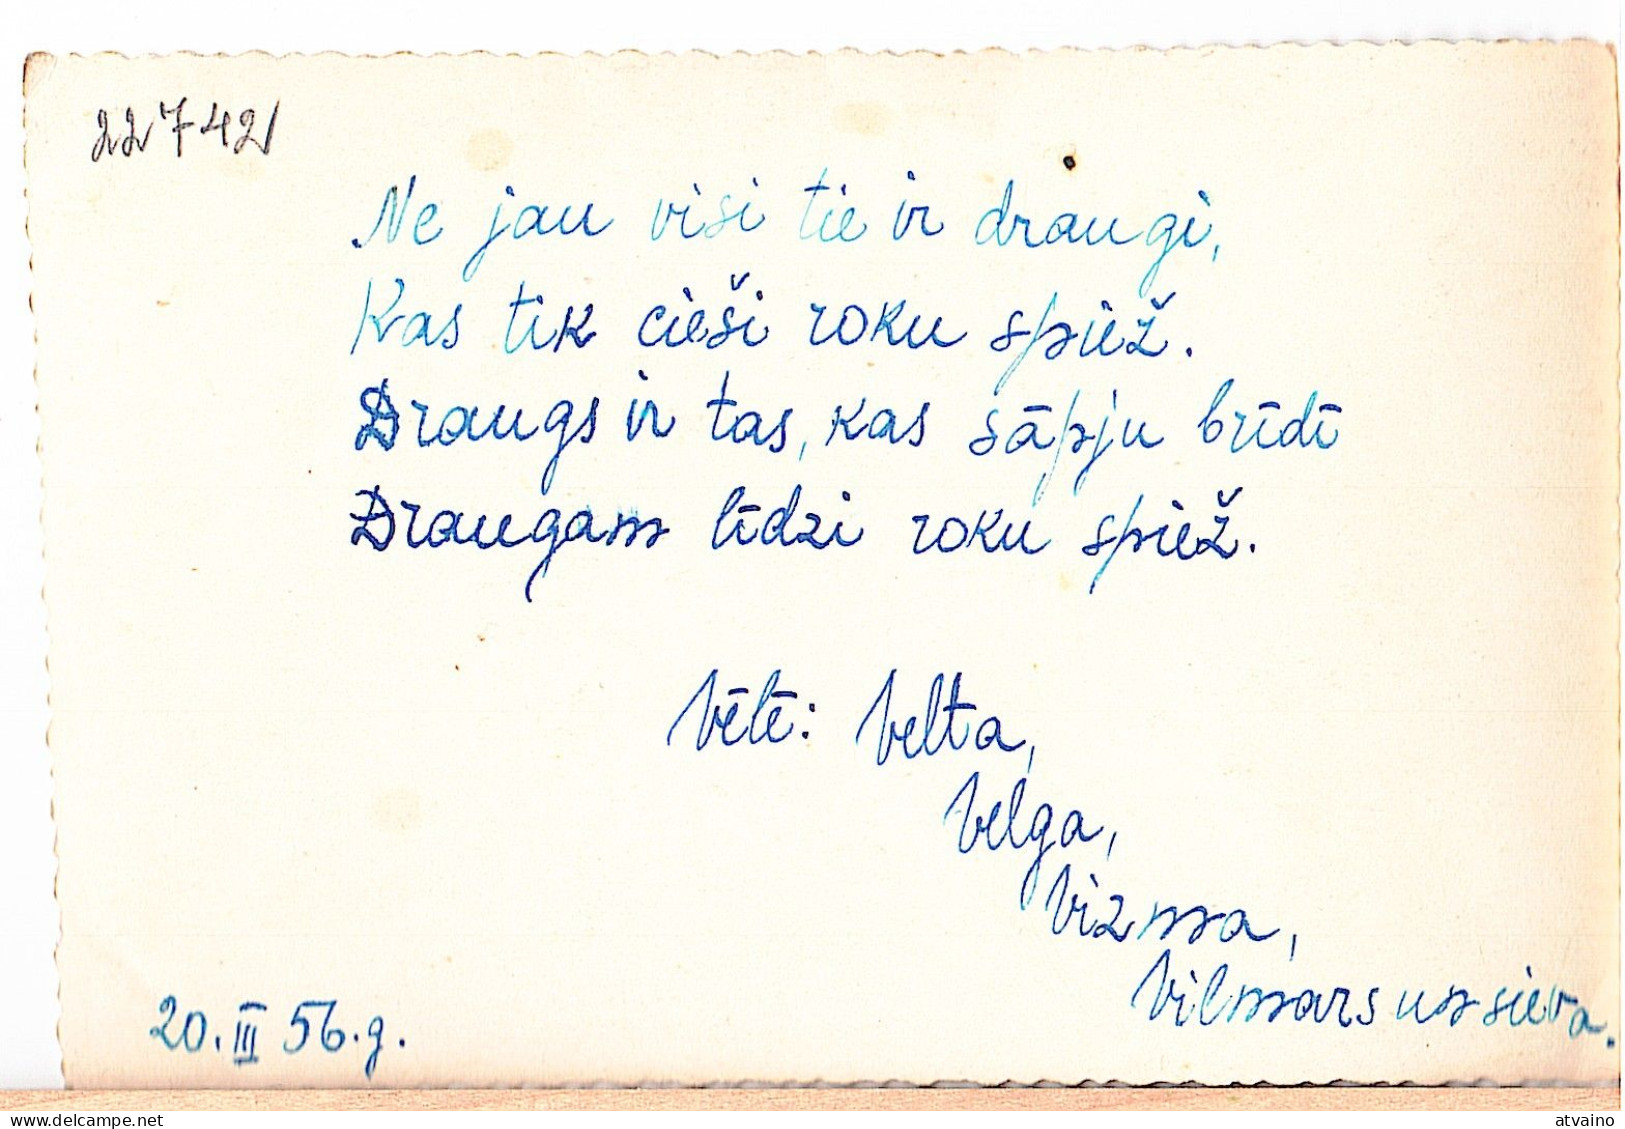 22742
Ne jau visi tie ir draugi,
Kas tik cieši roku spiež.
Draugs ir tas, kas sāpju brīdī
Draugam līdzi roku spiež.
Vēlē: Velta,
Velga,
Vizma,
Vilmars un sieva.
20. III 56. g.
www.delcampe.net
atvaino